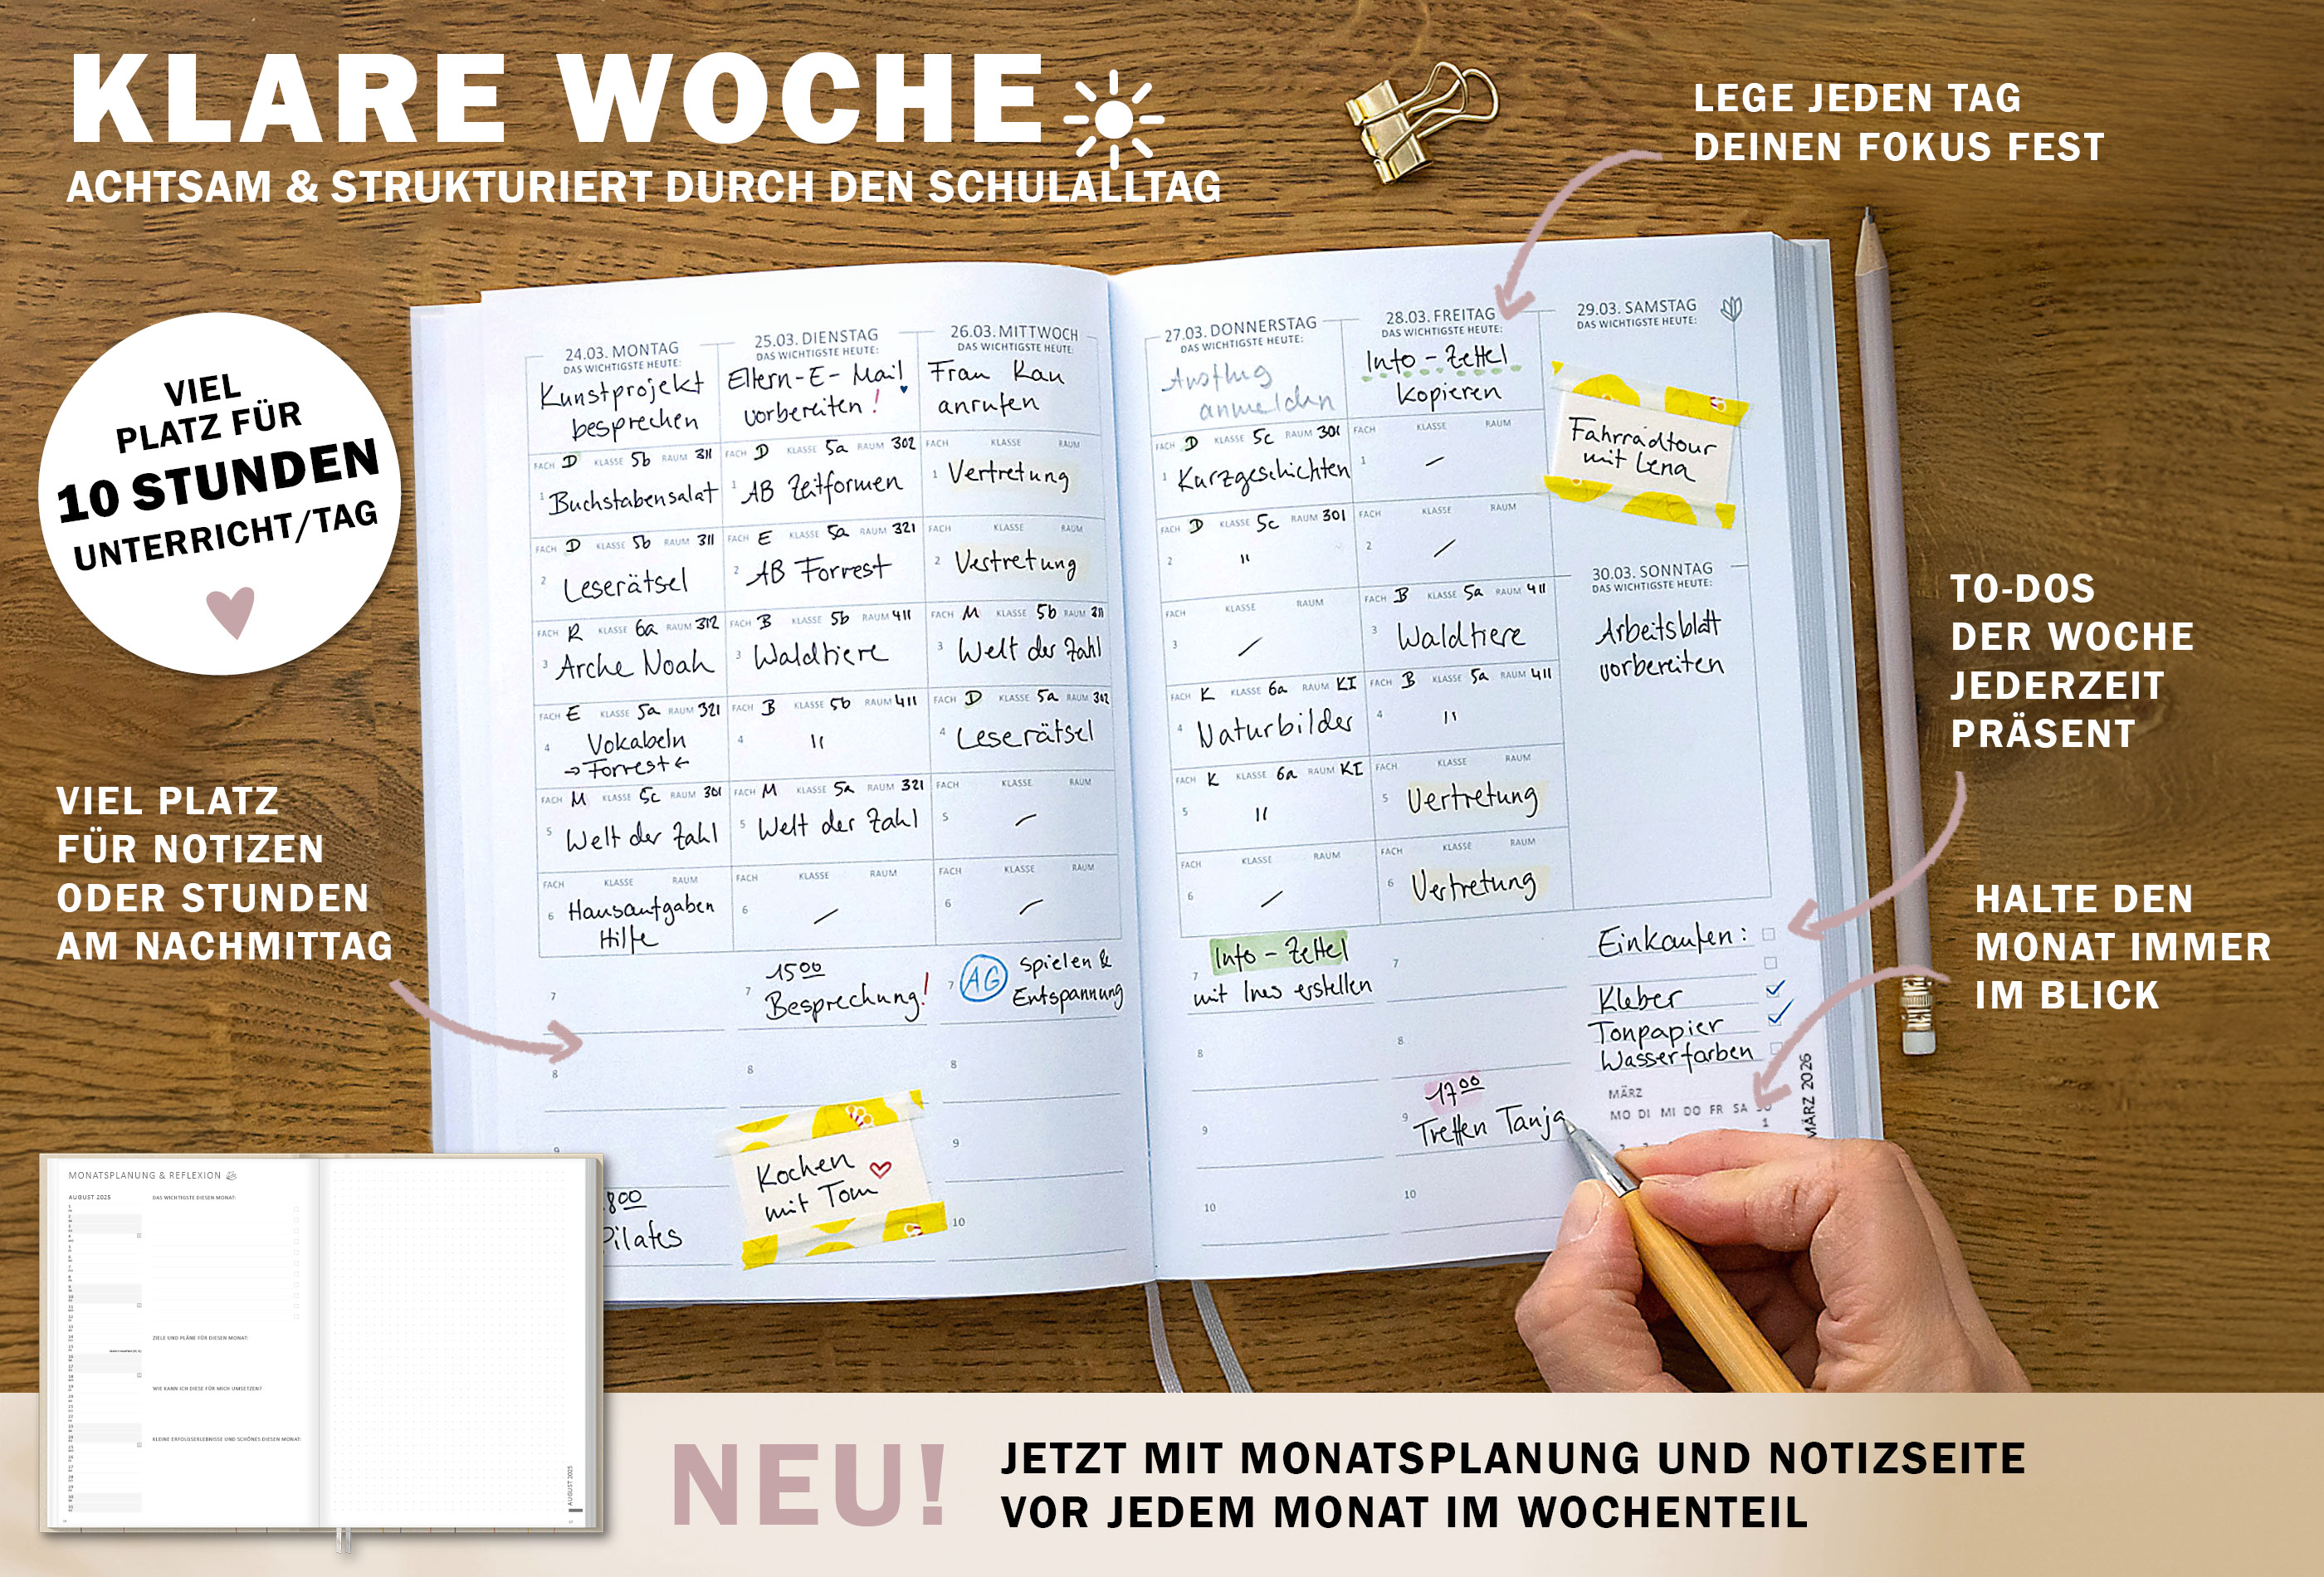 KLARE WOCHE
ACHTSAM & STRUKTURIERT DURCH DEN SCHULALLTAG
LEGE JEDEN TAG
DEINEN FOKUS FEST
VIEL
PLATZ FÜR
10 STUNDEN
UNTERRICHT/TAG
TO-DOS
DER WOCHE
JEDERZEIT
PRÄSENT
VIEL PLATZ
FÜR NOTIZEN
ODER STUNDEN
AM NACHMITTAG
HALTE DEN
MONAT IMMER
IM BLICK
24.03. MONTAG
DAS WICHTIGSTE HEUTE:
Kunstprojekt
besprechen
FACH D KLASSE 5b RAUM 311
1 Buchstabensalat
FACH D KLASSE 5b RAUM 311
2 Leserätsel
FACH R KLASSE 6a RAUM 312
3 Arche Noah
FACH E KLASSE 5a RAUM 321
4 Vokabeln
→Forrest←
FACH M KLASSE 5c RAUM 301
5 Welt der Zahl
FACH KLASSE RAUM
6 Hausaufgaben
Hilfe
7
8
9
Pilates
25.03. DIENSTAG
DAS WICHTIGSTE HEUTE:
Eltern-E-Mail
vorbereiten!
FACH D KLASSE 5a RAUM 302
1 AB Zeitformen
FACH E KLASSE 5a RAUM 321
2 AB Forrest
FACH B KLASSE 5b RAUM 411
3 Waldtiere
FACH B KLASSE 5b RAUM 411
4 "
FACH M KLASSE 5a RAUM 321
5 Welt der Zahl
FACH KLASSE RAUM
6 /
7 1500
Besprechung!
8
Kochen
mit Tom
26.03. MITTWOCH
DAS WICHTIGSTE HEUTE:
Frau Kau
anrufen
FACH KLASSE RAUM
1 Vertretung
FACH KLASSE RAUM
2 Vertretung
FACH M KLASSE 5b RAUM 311
3 Welt der Zahl
FACH D KLASSE 5a RAUM 302
4 Leserätsel
FACH KLASSE RAUM
5 /
FACH KLASSE RAUM
6 /
7 AG Spielen &
Entspannung
8
9
10
27.03. DONNERSTAG
DAS WICHTIGSTE HEUTE:
Ausflug
anmelden
FACH D KLASSE 5c RAUM 301
1 Kurzgeschichten
FACH D KLASSE 5c RAUM 301
2 "
FACH KLASSE RAUM
3 /
FACH K KLASSE 6a RAUM KI
4 Naturbilder
FACH K KLASSE 6a RAUM KI
5 "
FACH KLASSE RAUM
6 /
7 Info-Zettel
mit Ines erstellen
8
9
10
28.03. FREITAG
DAS WICHTIGSTE HEUTE:
Info-Zettel
kopieren
FACH KLASSE RAUM
1 /
FACH KLASSE RAUM
2 /
FACH B KLASSE 5a RAUM 411
3 Waldtiere
FACH B KLASSE 5a RAUM 411
4 "
FACH KLASSE RAUM
5 Vertretung
FACH KLASSE RAUM
6 Vertretung
7
8
9 1700
Treffen Tanja
10
29.03. SAMSTAG
DAS WICHTIGSTE HEUTE:
Fahrradtour
mit Lena
30.03. SONNTAG
DAS WICHTIGSTE HEUTE:
Arbeitsblatt
vorbereiten
Einkaufen:
Kleber
Tonpapier
Wasserfarben
MÄRZ
MO DI MI DO FR SA SO
1
MÄRZ 2026
MONATSPLANUNG & REFLEXION
AUGUST 2025
DAS WICHTIGSTE DIESEN MONAT:
ZIELE UND PLÄNE FÜR DIESEN MONAT:
WIE KANN ICH DIESE FÜR MICH UMSETZEN?
KLEINE ERFOLGSERLEBNISSE UND SCHÖNES DIESEN MONAT:
AUGUST 2025
NEU!
JETZT MIT MONATSPLANUNG UND NOTIZSEITE
VOR JEDEM MONAT IM WOCHENTEIL